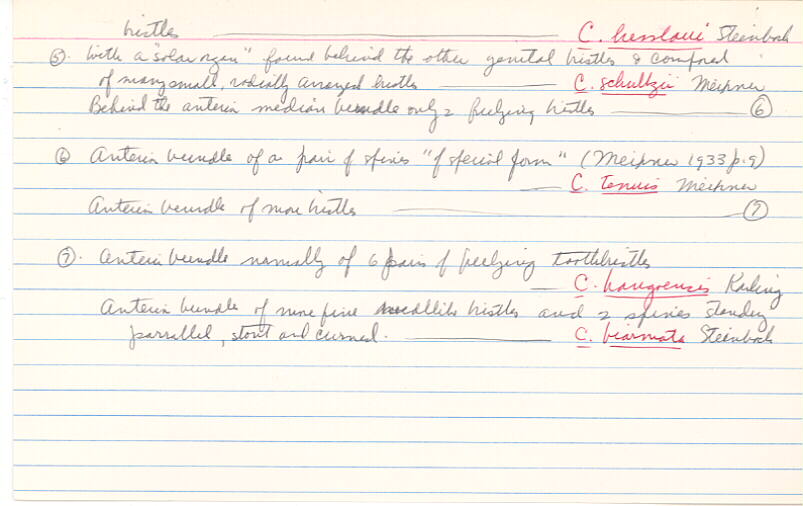 bristles C. hesslaui Steinbock
⑤. With a "solar organ" found behind the other genital bristles & composed
of many small, radially arranged bristles C. schultzii Meixner
Behind the anterior median bundle only 2 freelying bristles ⑥
⑥ Anterior bundle of a pair of spines "of special form" (Meixner 1933 p.9)
C. tenuis Meixner
Anterior bundle of more bristles ⑦
⑦. Anterior bundle normally of 6 pairs of freelying bristles
C. hangoensis Karling
Anterior bundle of nine fine needlelike bristles and 2 spines standing
parrallel, stout and curved. C. biarmata Steinbock